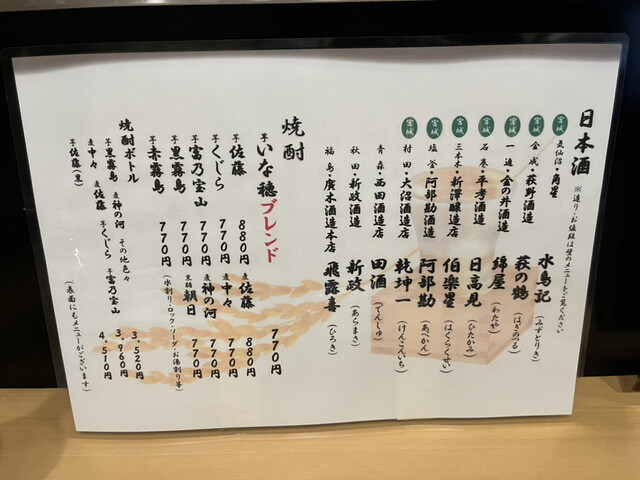 日本酒 ※造り・お値段は壁のメニューをご覧ください
宮城 気仙沼・角星 水鳥記（みずとりき）
宮城 金成・萩野酒造 萩の鶴（はぎのつる）
宮城 一迫・金の井酒造 綿屋（わたや）
宮城 石巻・平孝酒造 日高見（ひたかみ）
宮城 三本木・新澤醸造店 伯楽星（はくらくせい）
宮城 塩釜・阿部勘酒造 阿部勘（あべかん）
宮城 村田・大沼酒造店 乾坤一（けんこんいち）
青森・西田酒造店 田酒（でんしゅ）
秋田・新政酒造 新政（あらまさ）
福島・廣木酒造本店 飛露喜（ひろき）
焼酎
芋 いな穂ブレンド 770円
芋 佐藤 880円 麦 佐藤 880円
芋 くじら 770円 麦 中々 770円
芋 富乃宝山 770円 麦 神の河 770円
芋 黒霧島 770円 黒糖 朝日 770円
芋 赤霧島 770円（水割り・ロック・ソーダ・お湯割り等）
焼酎ボトル その他色々
芋 黒霧島 麦 神の河 3,520円
麦 中々 麦 佐藤 芋 くじら 芋 富乃宝山 3,960円
芋 佐藤（黒） 4,510円
（表面にもメニューがございます）